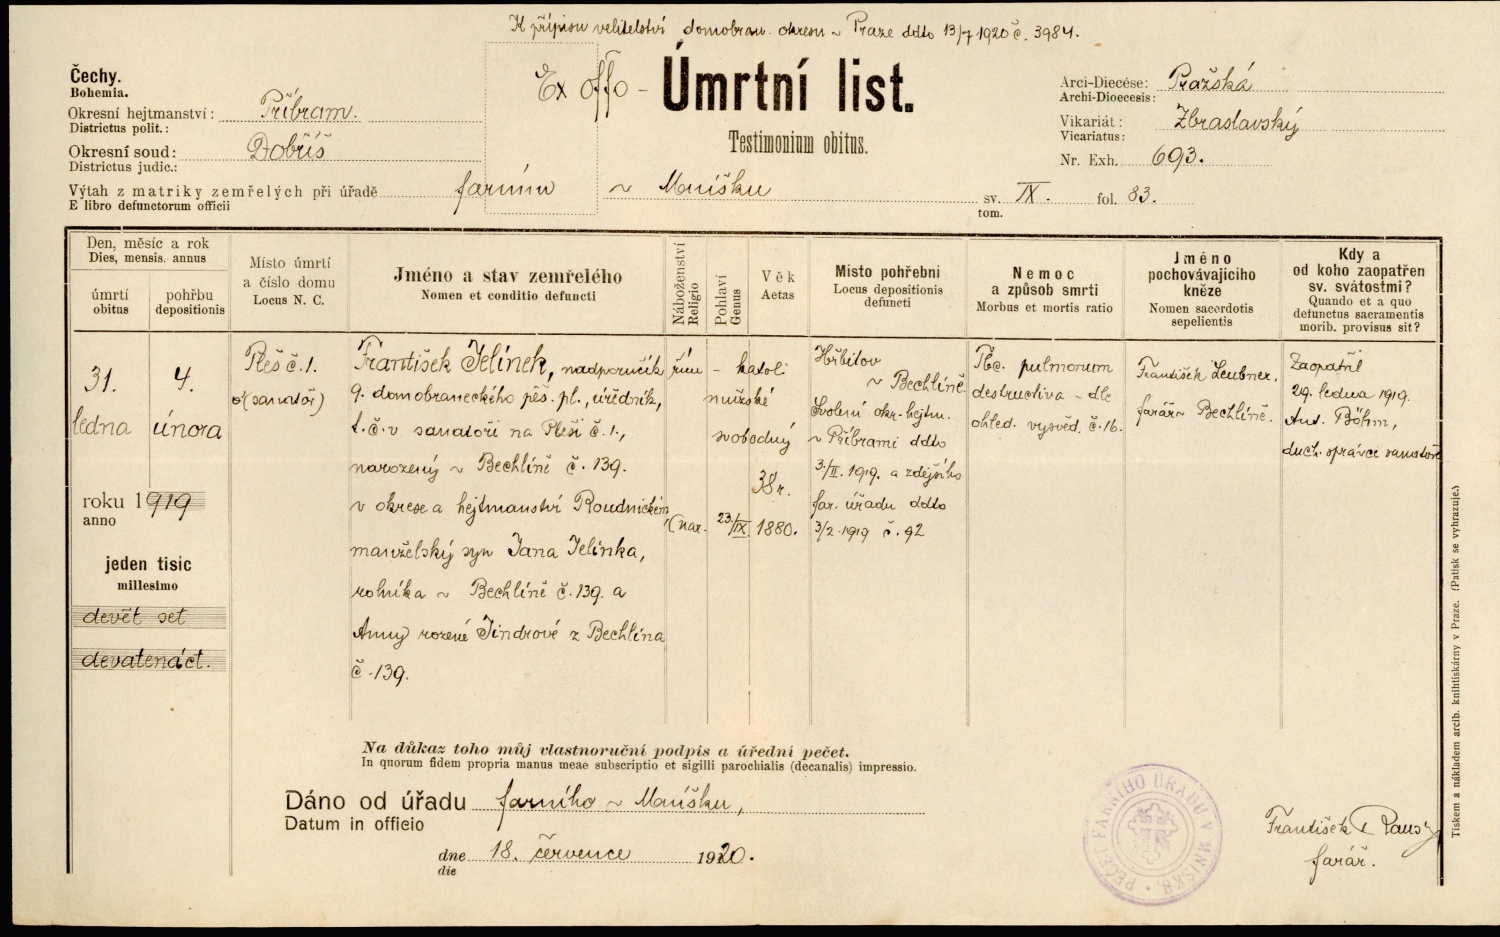 K přípisu velitelství domobran. okresu v Praze ddto 13/7 1920 č. 3984.
Ex offo -
Úmrtní list.
Testimonium obitus.
Čechy.
Bohemia.
Okresní hejtmanství: Příbram.
Districtus polit.:
Okresní soud: Dobříš
Districtus judic.:
Výtah z matriky zemřelých při úřadě farním v Mníšku sv. IX. fol. 83.
E libro defunctorum officii tom.
Arci-Diecése: Pražská
Archi-Dioecesis:
Vikariát: Zbraslavský
Vicariatus:
Nr. Exh. 693.
Den, měsíc a rok
Dies, mensis. annus
úmrtí
obitus
pohřbu
depositionis
Místo úmrtí
a číslo domu
Locus N. C.
Jméno a stav zemřelého
Nomen et conditio defuncti
Náboženství
Religio
Pohlaví
Genus
Věk
Aetas
Místo pohřební
Locus depositionis
defuncti
Nemoc
a způsob smrti
Morbus et mortis ratio
Jméno
pochovávajícího
kněze
Nomen sacerdotis
sepelientis
Kdy a
od koho zaopatřen
sv. svátostmi?
Quando et a quo
defunctus sacramentis
morib. provisus sit?
31.
ledna
4.
února
roku 1919
anno
jeden tisíc
millesimo
devět set
devatenáct.
Pleš č. 1.
(sanatoř)
František Jelínek, nadporučík
9. domobraneckého pěš. pl., úředník,
t. č. v sanatoři na Pleši č. 1.,
narozený v Bechlíně č. 139.
v okrese a hejtmanství Roudnickém,
manželský syn Jana Jelínka,
rolníka v Bechlíně č. 139. a
Anny rozené Jindrové z Bechlína
č. 139.
řím - katol.
mužské
svobodný
38 r.
(nar. 23/IX. 1880.
Hřbitov
v Bechlíně.
Svolení okr. hejtm.
v Příbrami ddto
3./II. 1919. a zdejšího
far. úřadu ddto
3/2. 1919 č. 92
Tbc. pulmonum
destructiva - dle
ohled. vysvěd. č. 16.
František Leubner,
farář v Bechlíně.
Zaopatřil
29. ledna 1919.
Ant. Böhm,
duch. správce sanatoře
Na důkaz toho můj vlastnoruční podpis a úřední pečet.
In quorum fidem propria manus meae subscriptio et sigilli parochialis (decanalis) impressio.
Dáno od úřadu farního v Mníšku,
Datum in officio
dne 18. července 1920.
die
PEČEŤ FARNÍHO ÚŘADU V MNÍŠKU.
František
farář.
Tiskem a nákladem arcib. knihtiskárny v Praze. (Patisk se vyhrazuje.)